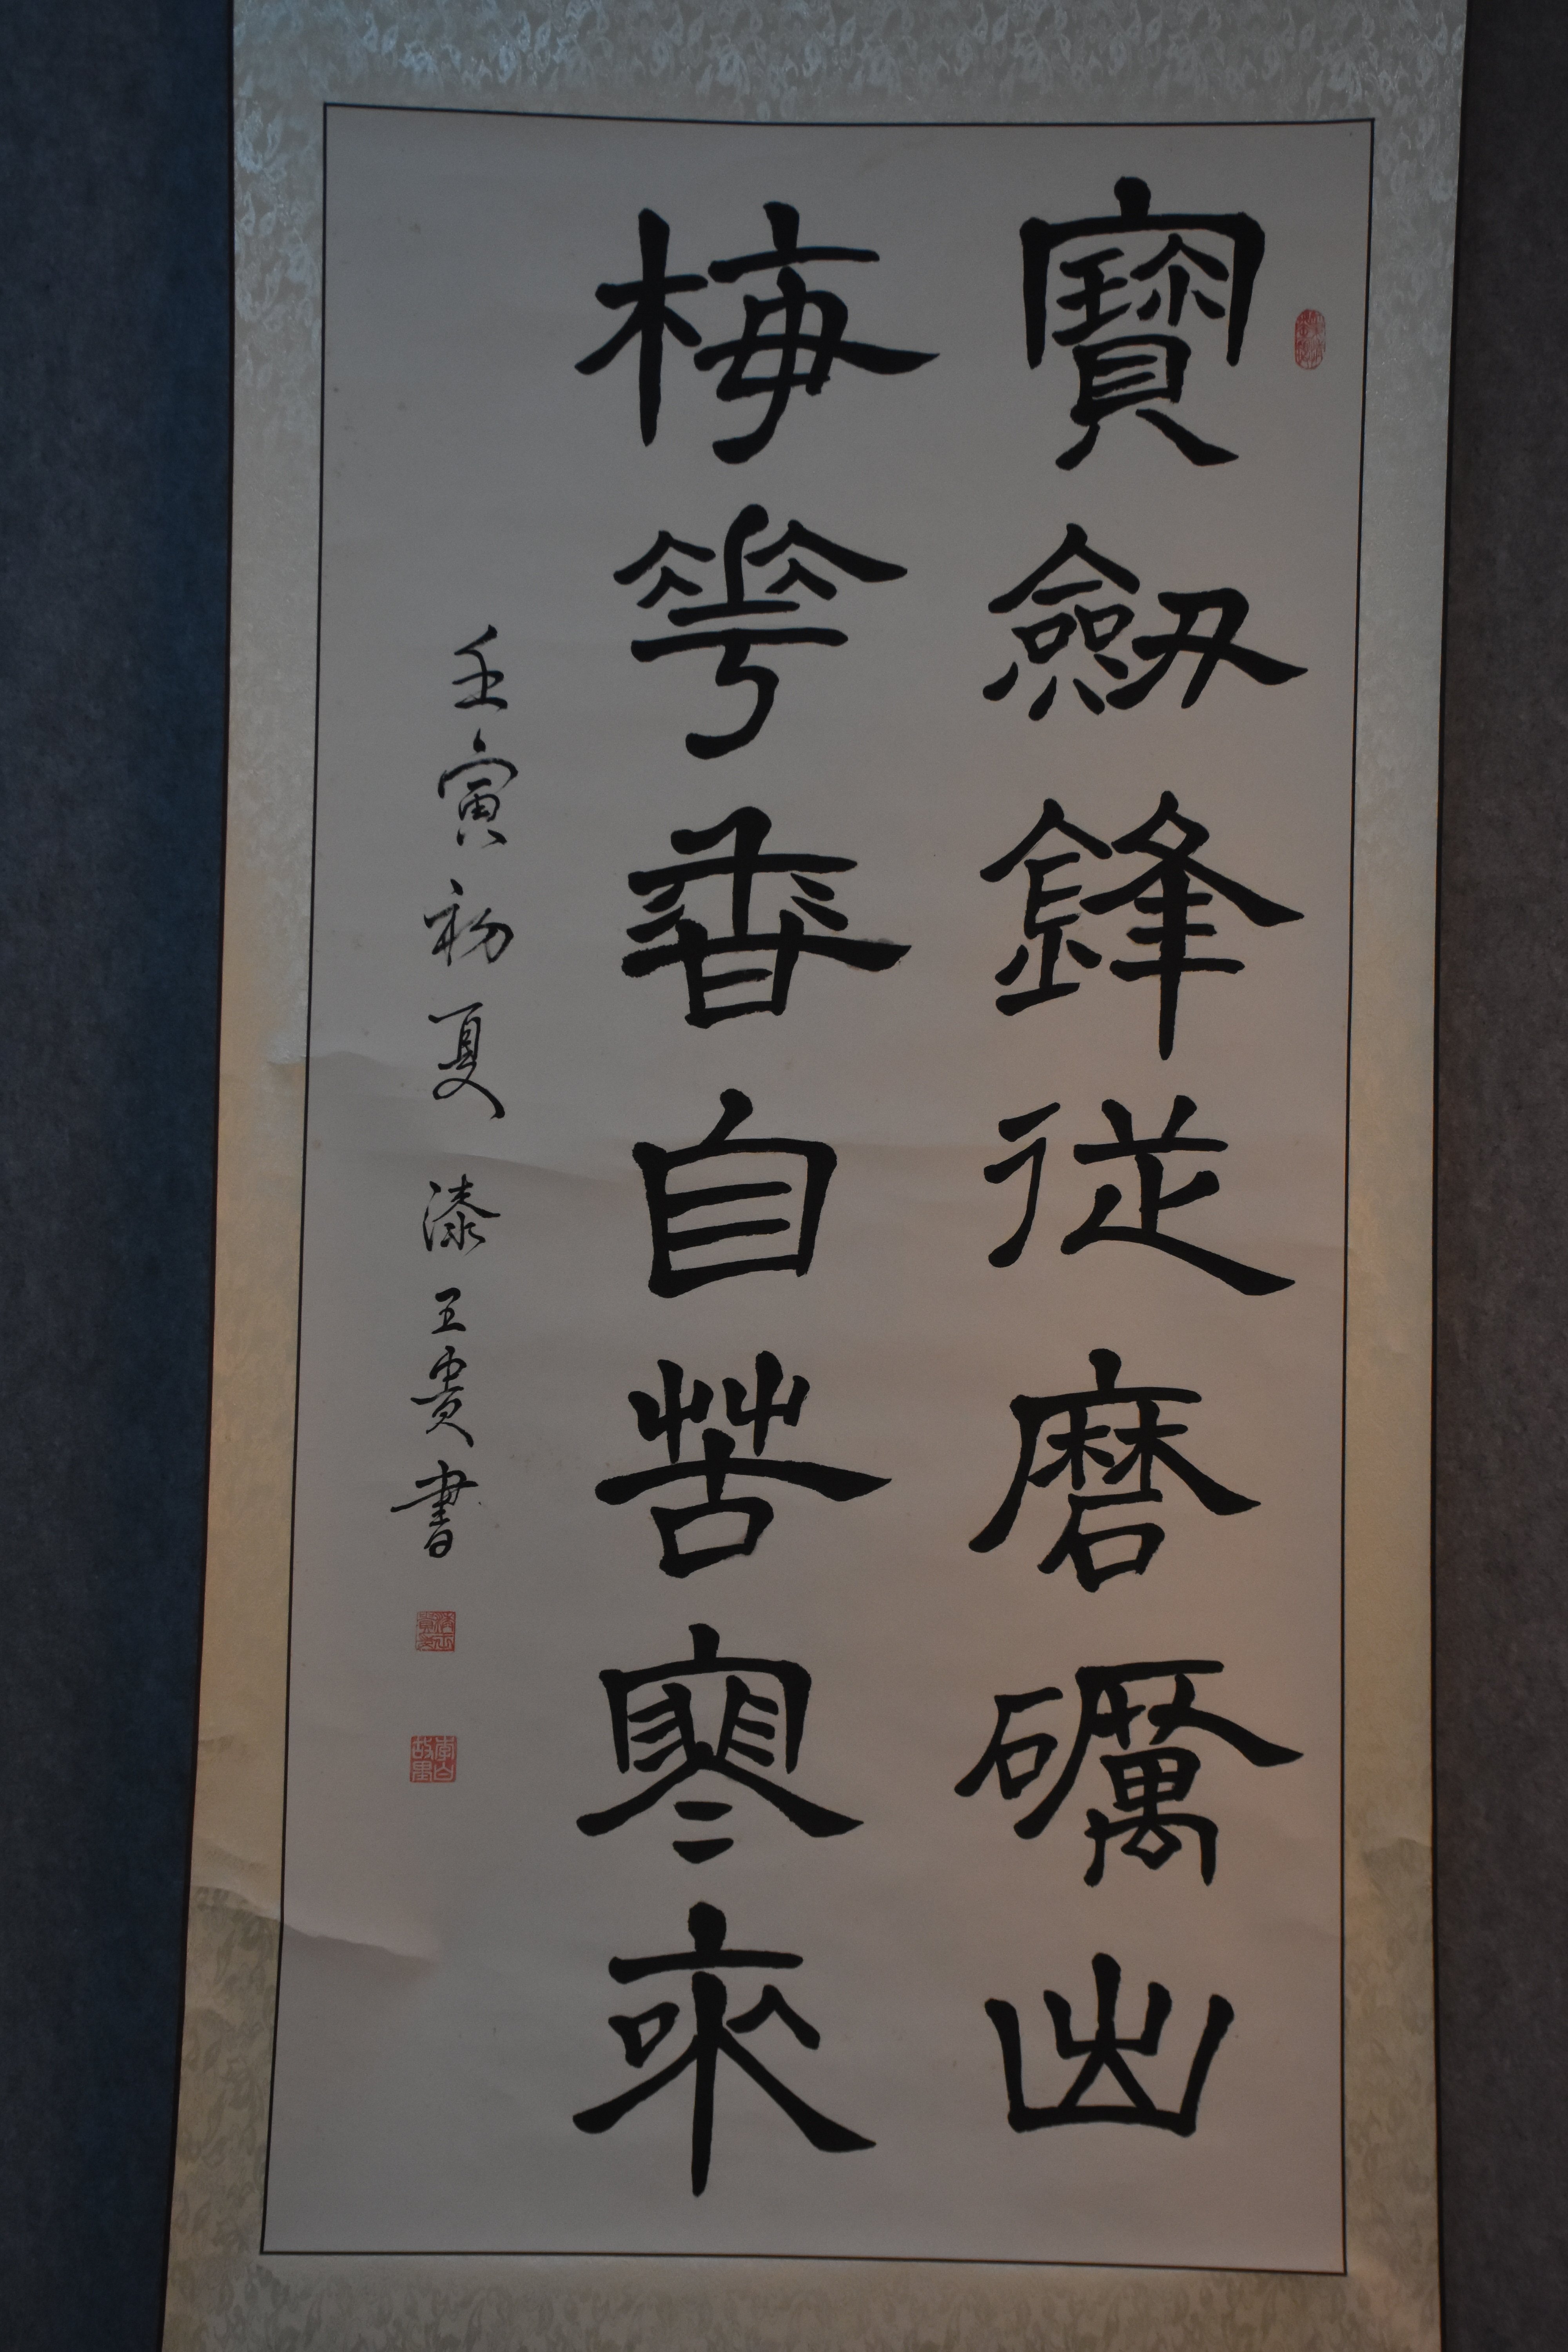 寶劔鋒從磨礪出
梅花香自苦寒來
壬寅初夏漆玉貴書
李白故里